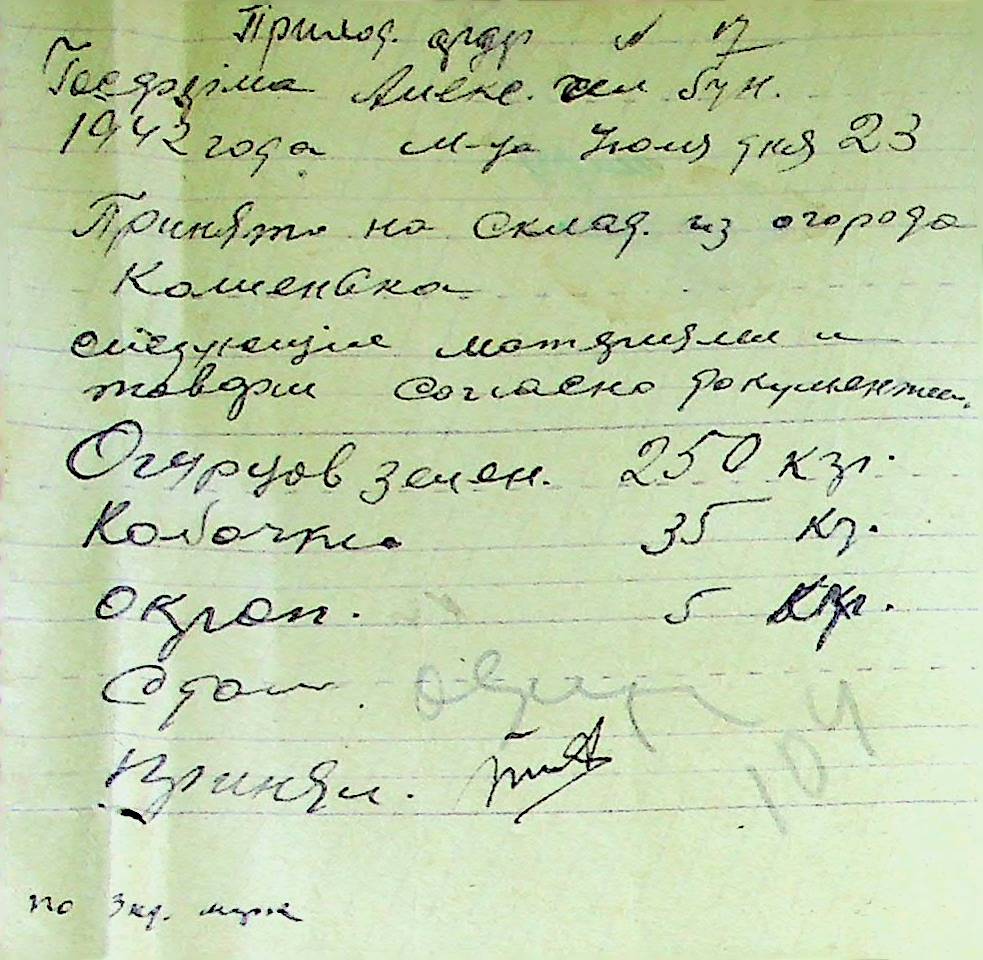 Приход. ордр № 17
Госдрзима Алекс.
1942 года м-ца Июля дня 23
Принято на склад. из огорода
Каменвка
следующие матерялы и
товары согласно документам.
Огурцов зелен. 250 кгр.
Кобочки 35 кг.
окроп. 5 кгр.
Сдал.
Принял.
104
по